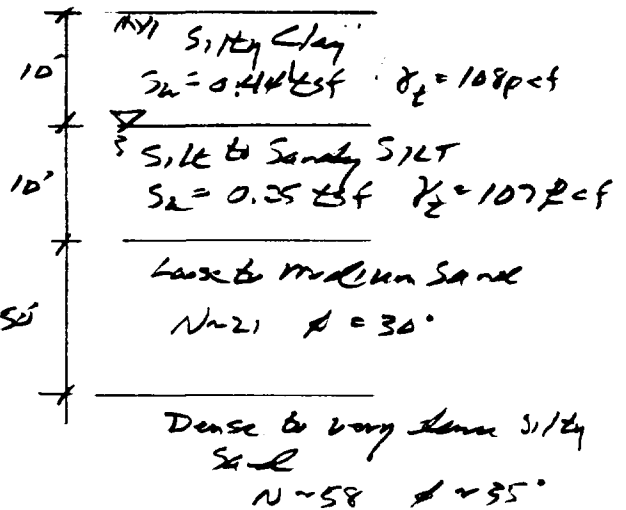 10'
Silty Clay
Su = 0.44 tsf γt = 108pcf
10'
Silt to Sandy SILT
Su = 0.25 tsf γt = 107pcf
50'
Loose to medium Sand
N~21 φ = 30°
Dense to very dense silty
Sand
N~58 φ~35°